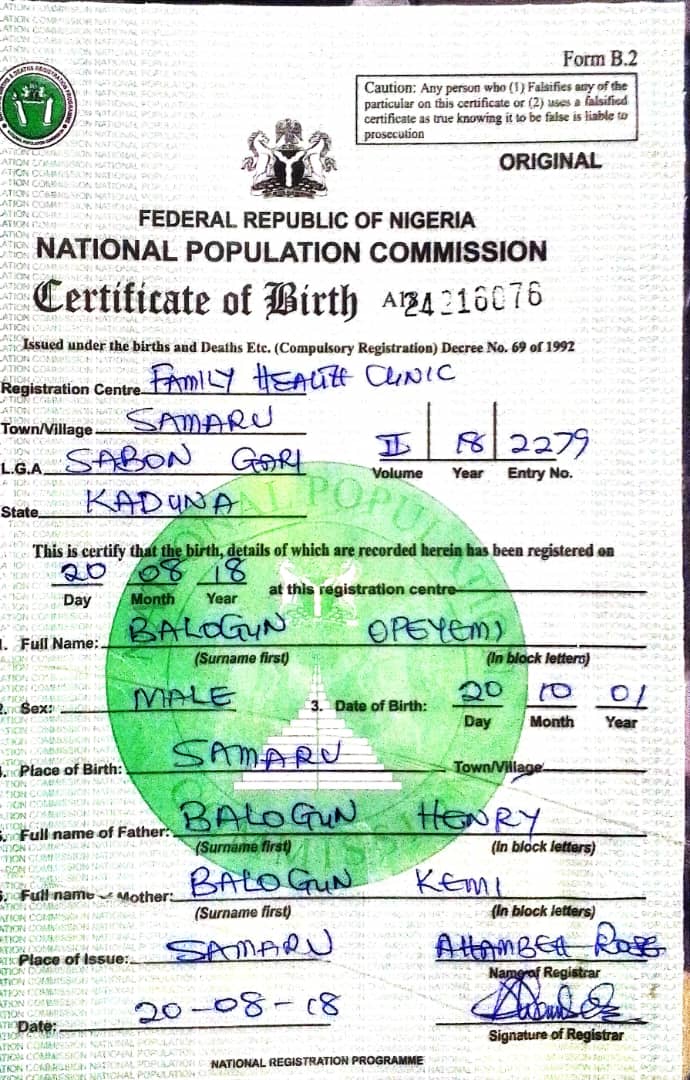 Form B.2
Caution: Any person who (1) Falsifies any of the
particular on this certificate or (2) uses a falsified
certificate as true knowing it to be false is liable to
prosecution
ORIGINAL
FEDERAL REPUBLIC OF NIGERIA
NATIONAL POPULATION COMMISSION
Certificate of Birth 24216076
Issued under the births and Deaths Etc. (Compulsory Registration) Decree No. 69 of 1992
Registration Centre FAMILY HEALTH CLINIC
Town/Village SAMARU
L.G.A. SABON GARI II 18 2279
Volume Year Entry No.
State KADUNA
This is certify that the birth, details of which are recorded herein has been registered on
20 08 18 at this registration centre
Day Month Year
1. Full Name: BALOGUN OPEYEMI
(Surname first) (In block letters)
2. Sex: MALE 3. Date of Birth: 20 10 01
Day Month Year
Place of Birth: SAMARU Town/Village
Full name of Father: BALOGUN HENRY
(Surname first) (In block letters)
Full name Mother: BALOGUN KEMI
(Surname first) (In block letters)
Place of Issue: SAMARU
Name of Registrar
Date: 20-08-18
Signature of Registrar
NATIONAL REGISTRATION PROGRAMME